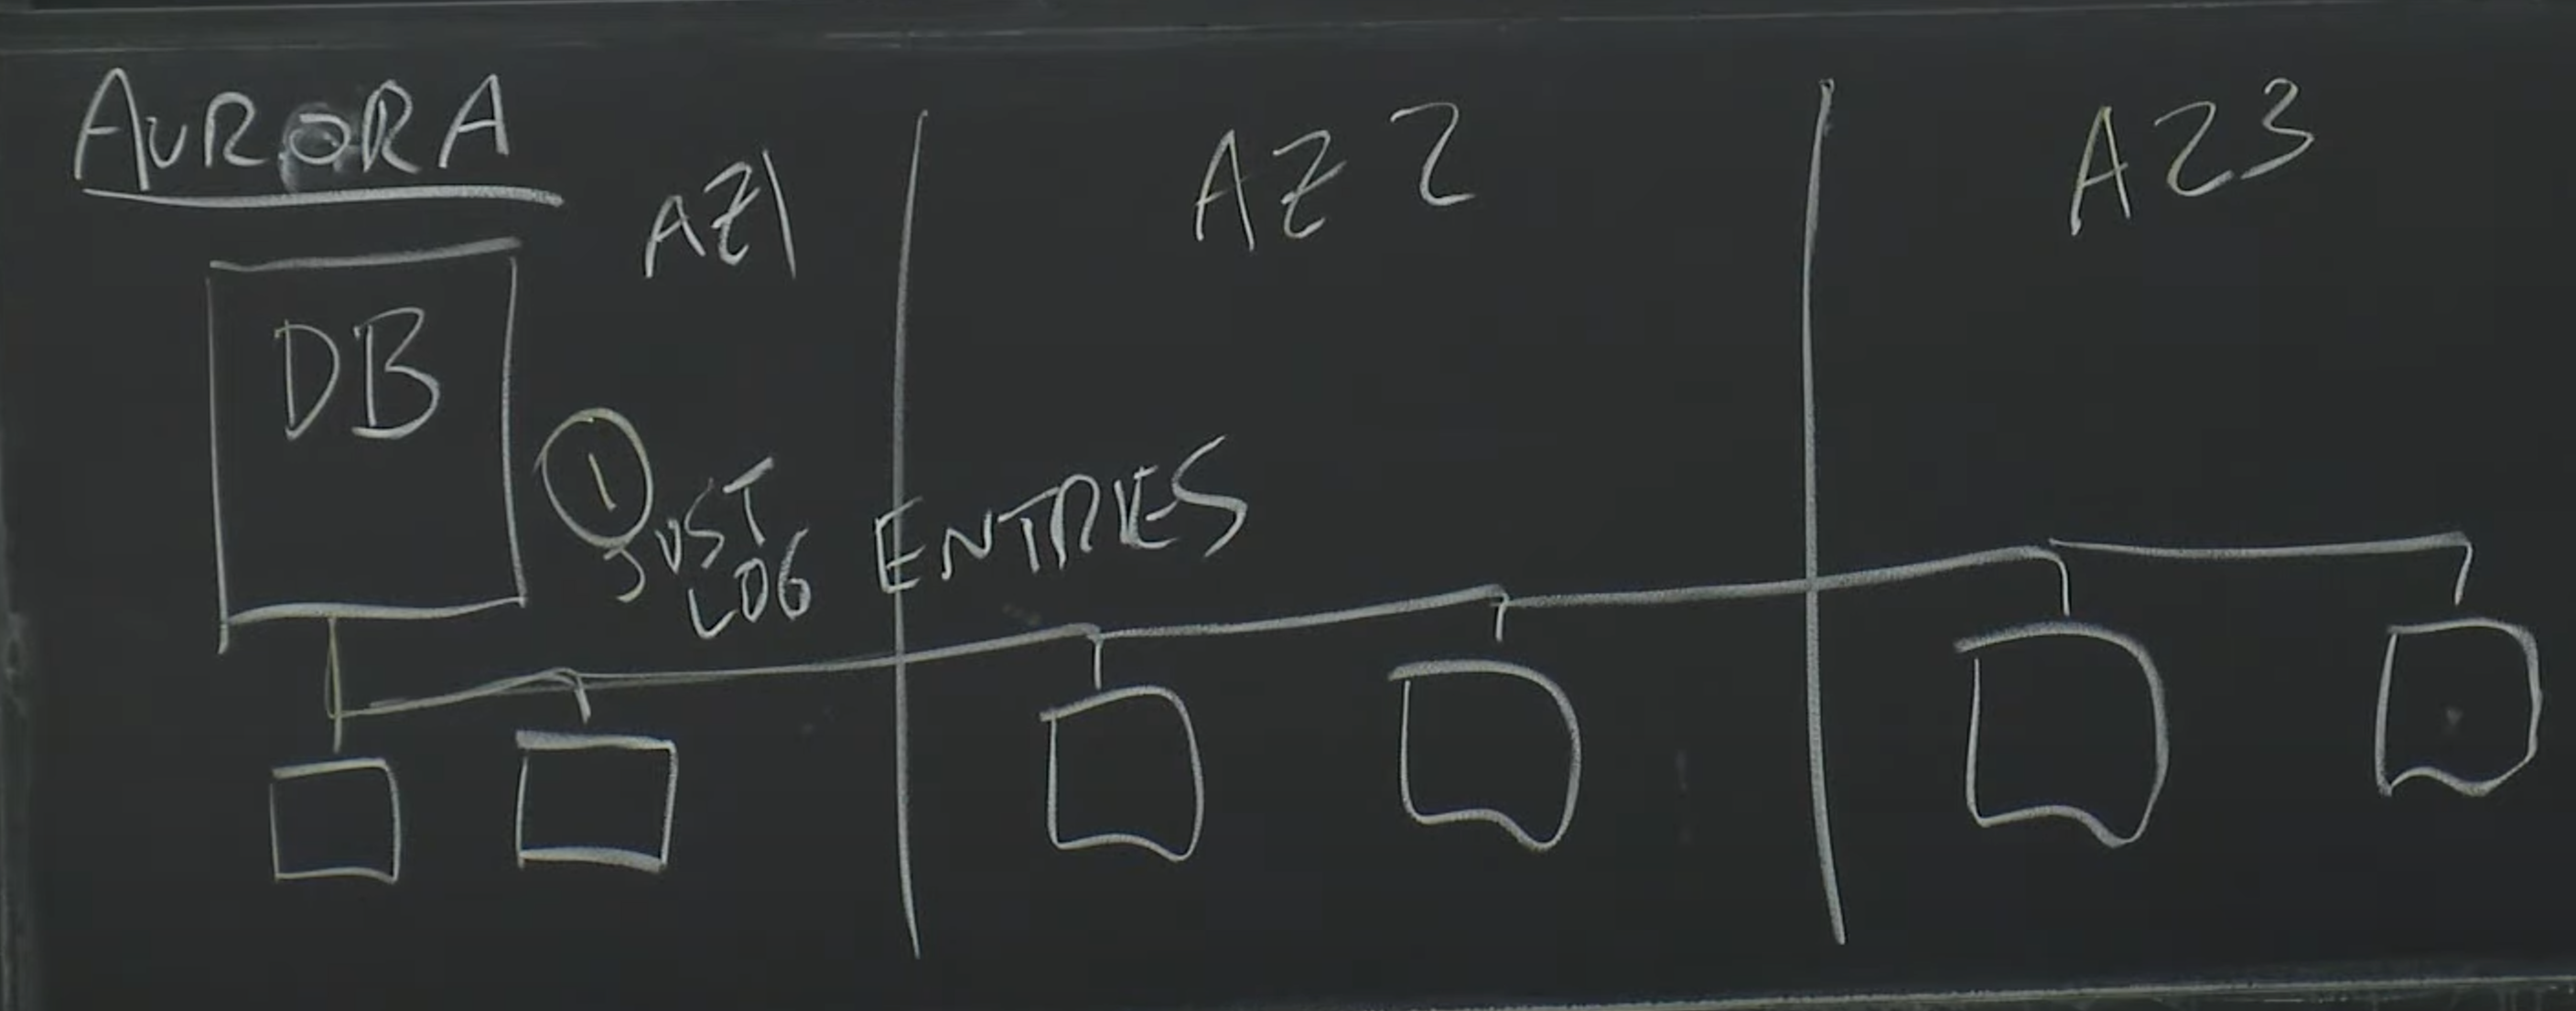 AURORA
AZ1
AZ2
AZ3
DB
1
JUST
LOG ENTRIES